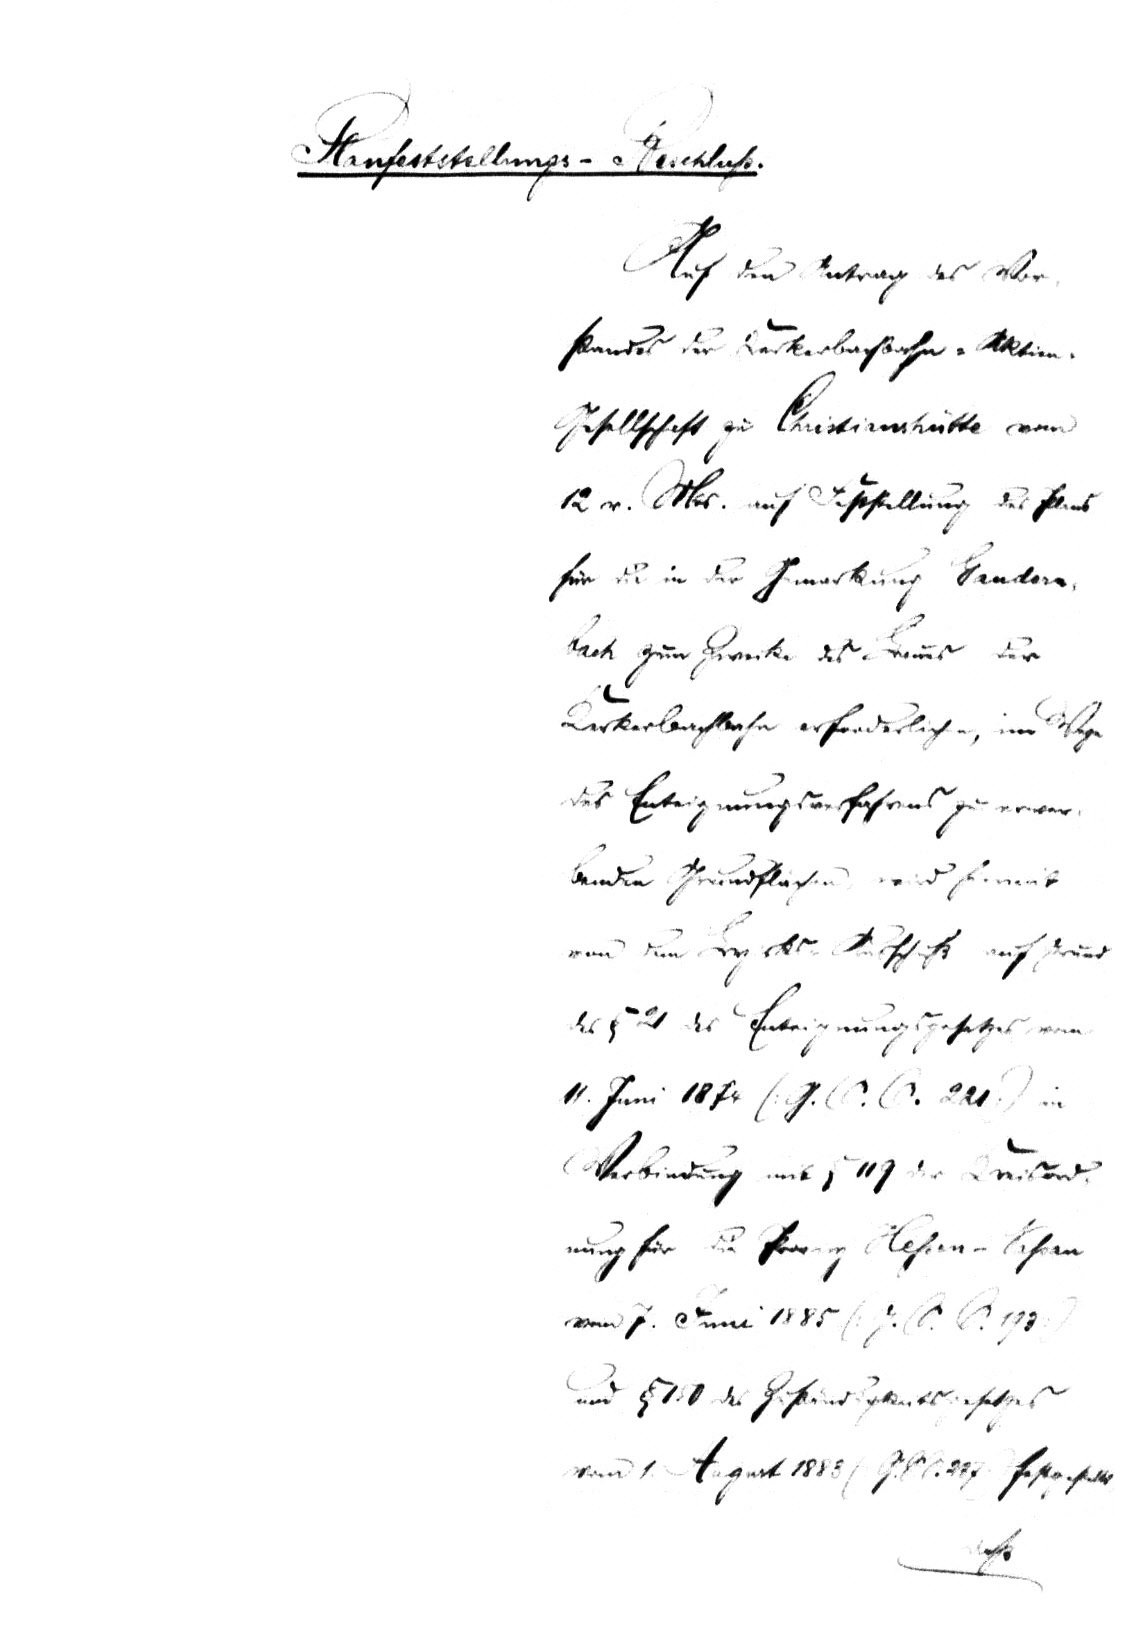 Planfeststellungs-Beschluß.
Auf den Antrag des Vor-
standes der Kerkerbachbahn-Aktien-
Gesellschaft zu Christianshütte vom
12 v. Mts. auf Feststellung des Plans
für die in der Gemarkung Gaudern-
bach zum Zwecke des Baues der
Kerkerbachbahn erforderlichen, im Wege
des Enteignungsverfahrens zu erwer-
benden Grundflächen, wird hiermit
von dem Bezirks-Ausschuß auf Grund
des § 21 des Enteignungsgesetzes vom
11. Juni 1874 (: G. S. S. 221 :) in
Verbindung mit § 119 der Kreisord-
nung für die Provinz Hessen-Nassau
vom 7. Juni 1885 (: G. S. S. 193 :)
und § 150 des Zuständigkeitsgesetzes
vom 1. August 1883 (: G. S. S. 237 :) festgestellt
daß